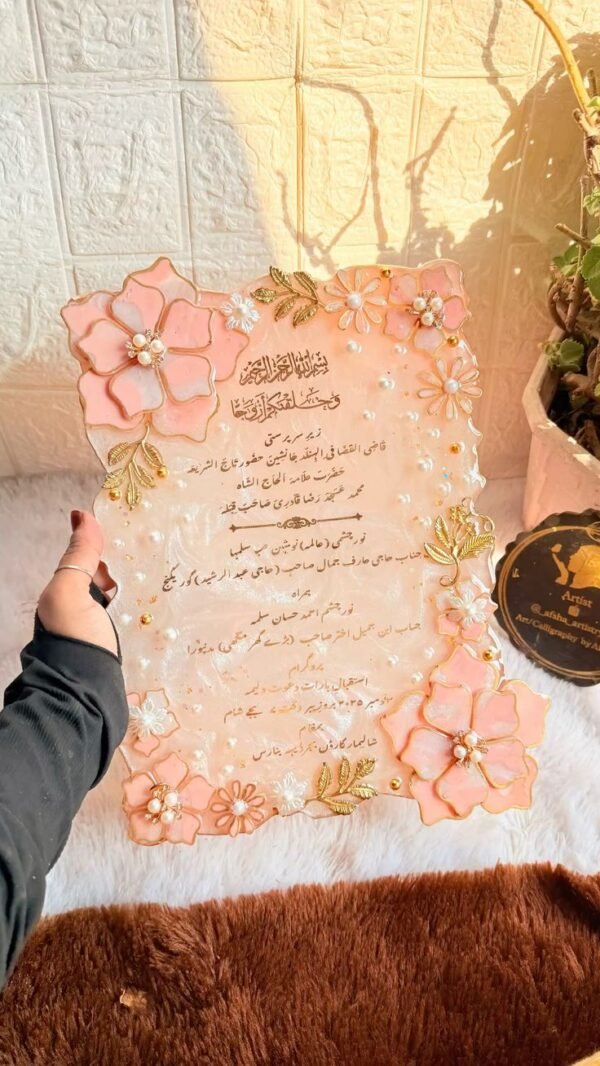 بسم الله الرحمن الرحيم
وخلقنكم أزواجا
زیر سرپرستی
قاضی القضا فی الہند جانشین حضور تاج الشریعہ
حضرت علامہ الحاج الشاہ
محمد عسجد رضا قادری صاحب قبلہ
نور چشمی (عالمہ) نوشین حب سلمہا
جناب حاجی عارف جمال صاحب (حاجی عبد الرشید) گوریگنج
ہمراہ
نور چشم احمد حسان سلمہ
جناب ابن جمیل اختر صاحب (بڑے گھر منگھی) مدنپورا
پروگرام
استقبال بارات دعوت ولیمہ
نومبر ۲۰۲۵ بروز پیر وقت ۷ بجے شام
بمقام
شالیمار گارڈن بنارس
Artist
@_afsha_artistry
Art/Calligraphy by